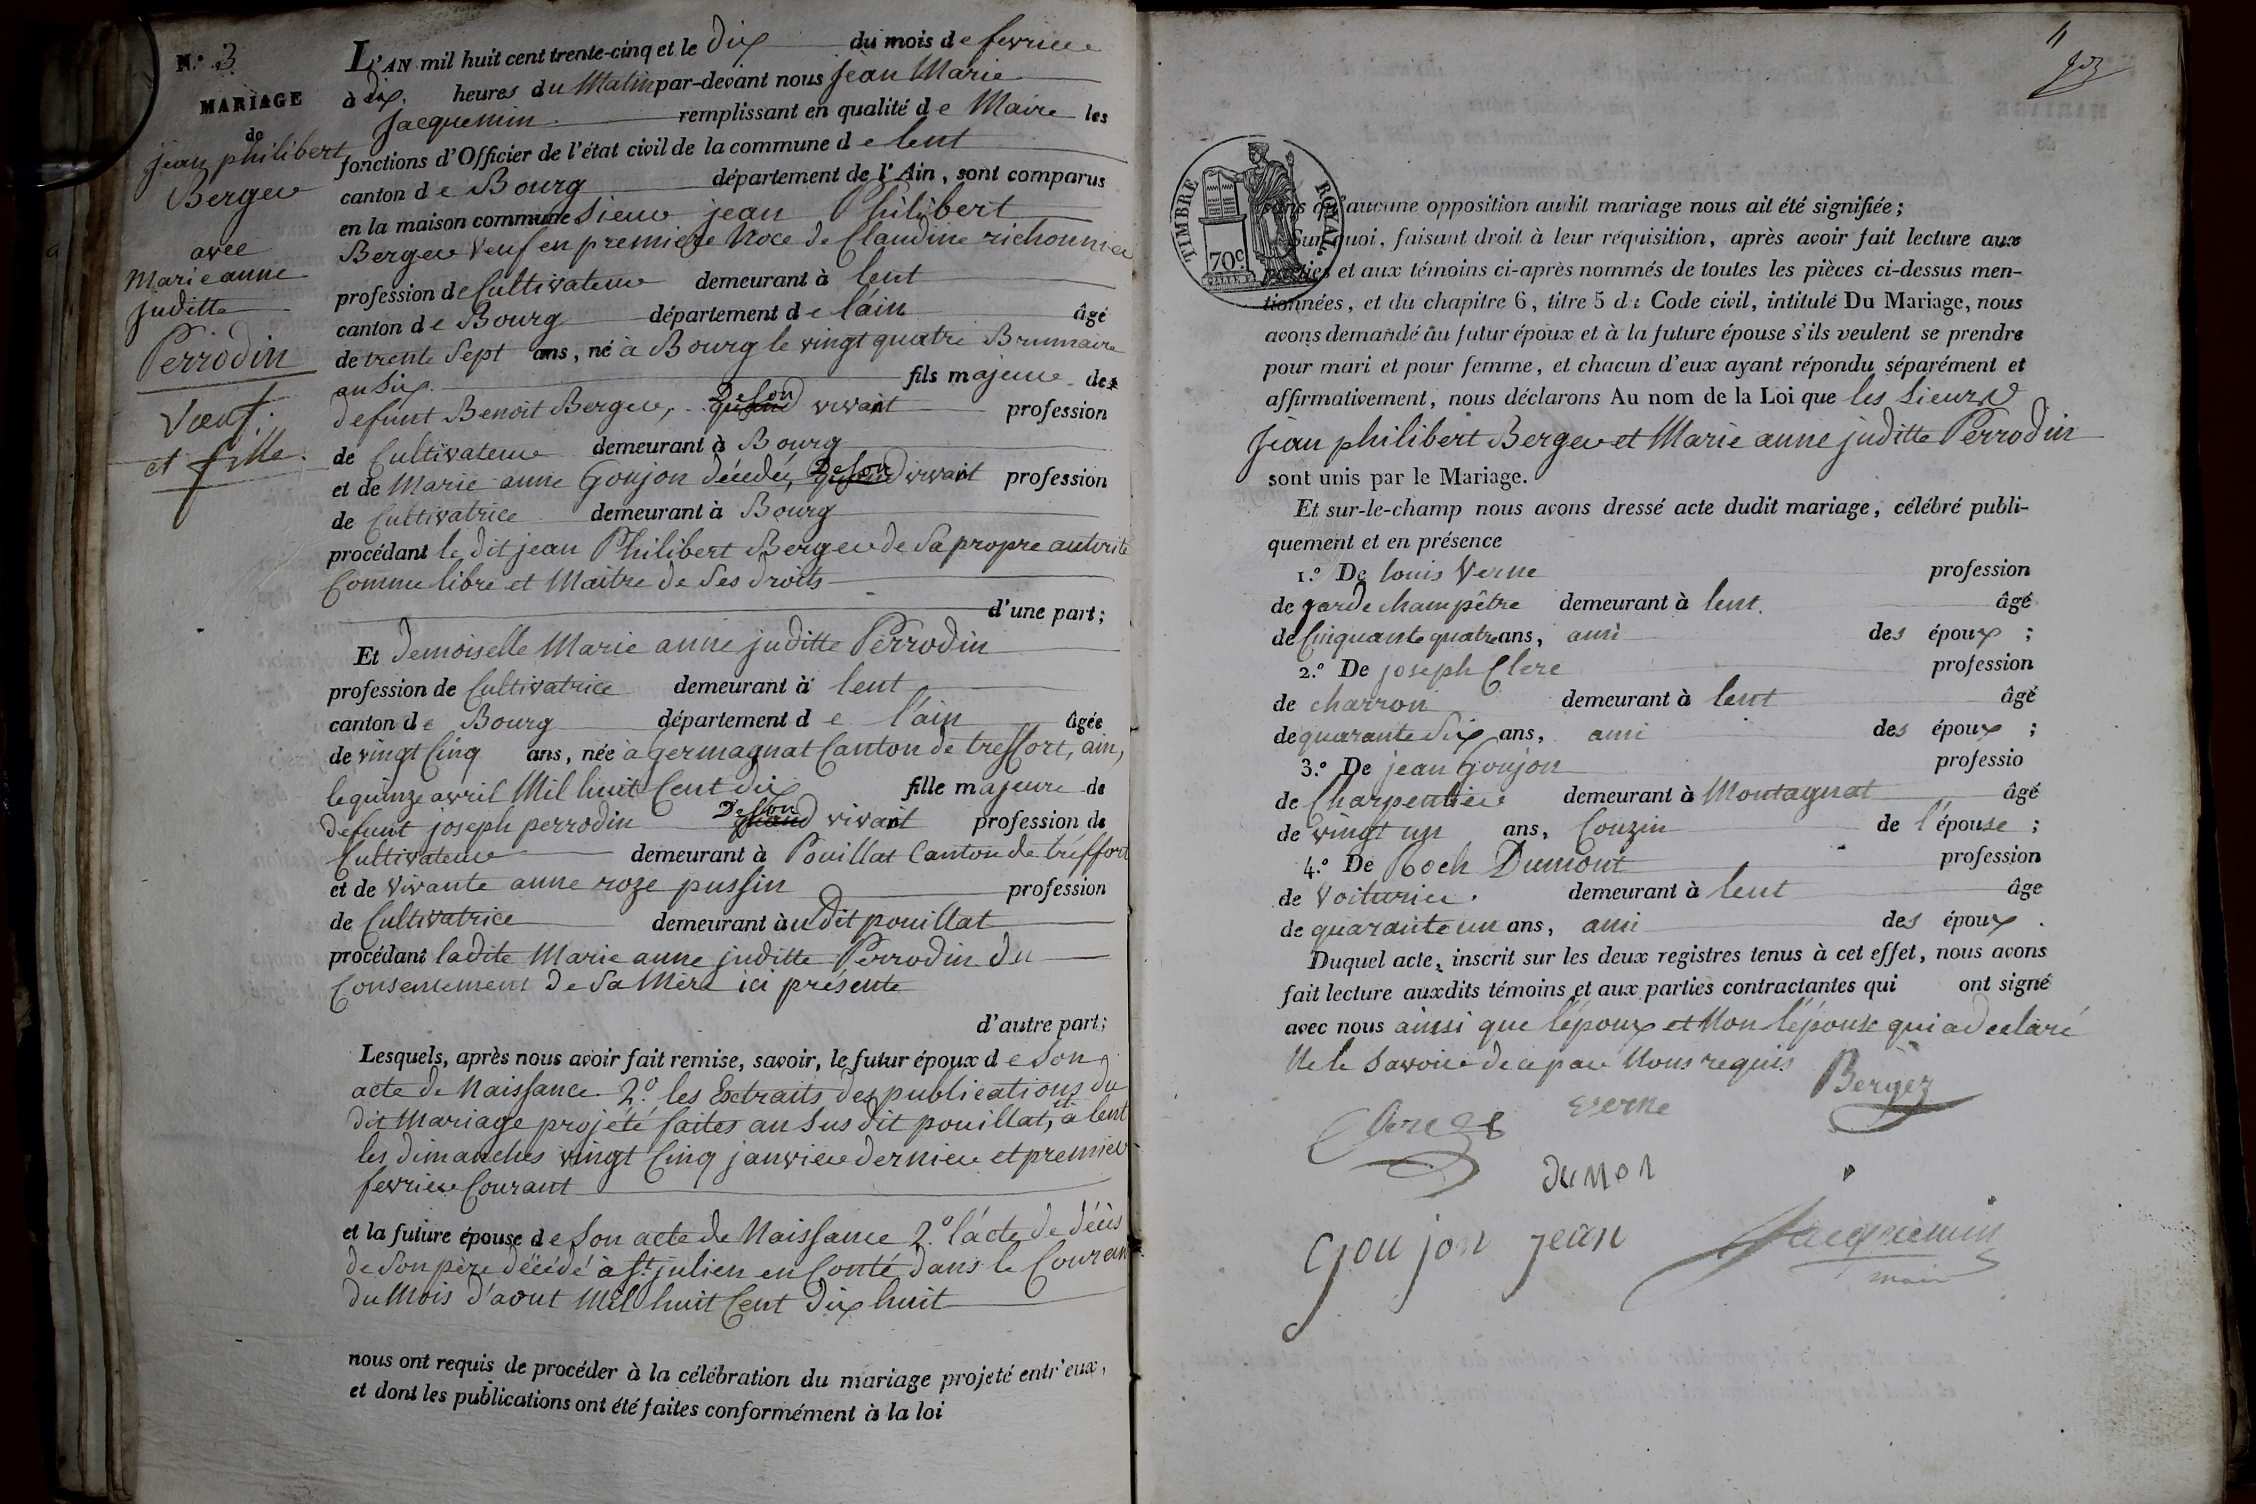 N.º 3
MARIAGE
de
jean philibert
Berger
avec
Marie anne
juditte
Perrodin
Vœuf.
et fille.
L'AN mil huit cent trente-cinq et le dix du mois de fevrier
à dix. heures du Matin par-devant nous Jean Marie
Jacquemin. remplissant en qualité de Maire les
fonctions d'Officier de l'état civil de la commune de lent
canton de Bourg département de l'Ain, sont comparus
en la maison commune Sieur jean Philibert
Berger Veuf en premiere Noce de Claudine richonnier
profession de Cultivateur demeurant à lent
canton de Bourg département de l'ain âgé
de trente Sept ans, né à Bourg le vingt quatre Brumaire
an Six. fils majeur des
defunt Benoit Berger, De Son vivant profession
de Cultivateur demeurant à Bourg
et de Marie anne Goujon décédé, De Son vivant profession
de Cultivatrice demeurant à Bourg
procédant le dit jean Philibert Berger de Sa propre autorité
Comme libre et Maitre de Ses droits
d'une part;
Et demoiselle Marie anne juditte Perrodin
profession de Cultivatrice demeurant à lent
canton de Bourg département de l'ain âgée
de vingt Cinq ans, née à germagnat Canton de treffort, ain,
le quinze avril Mil huit Cent dix fille majeure de
defunt joseph perrodin De Son vivant profession de
Cultivateur demeurant à Pouillat Canton de tréffort
et de Vivante anne roze pussin profession
de Cultivatrice demeurant àu dit pouillat
procédant ladite Marie anne juditte Perrodin du
Consentement de Sa Mère ici présente
d'autre part;
Lesquels, après nous avoir fait remise, savoir, le futur époux de Son
acte de Naissance. 2.º les Extraits des publications du
dit Mariage projété faites au Sus dit pouillat, et à lent
les dimanches vingt Cinq janvier dernier et premier
fevrier Courant
et la future épouse de Son acte de Naissance 2.º l'acte de décès
de Son père décédé à St. julien en Conté dans le Courant
du Mois d'aout Mil huit Cent dix huit
nous ont requis de procéder à la célébration du mariage projeté entr'eux,
et dont les publications ont été faites conformément à la loi
4
TIMBRE ROYAL.
70 c.
sans qu'aucune opposition audit mariage nous ait été signifiée;
Sur quoi, faisant droit à leur réquisition, après avoir fait lecture aux
parties et aux témoins ci-après nommés de toutes les pièces ci-dessus men-
tionnées, et du chapitre 6, titre 5 du Code civil, intitulé Du Mariage, nous
avons demandé au futur époux et à la future épouse s'ils veulent se prendre
pour mari et pour femme, et chacun d'eux ayant répondu séparément et
affirmativement, nous déclarons Au nom de la Loi que les Sieurs
Jean philibert Berger et Marie anne juditte Perrodin
sont unis par le Mariage.
Et sur-le-champ nous avons dressé acte dudit mariage, célébré publi-
quement et en présence
1.º De louis Verne profession
de garde champêtre demeurant à lent. âgé
de Cinquante quatre ans, ami des époux;
2.º De joseph Clerc profession
de charron demeurant à lent âgé
de quarante Six ans, ami des époux;
3.º De jean Goujon professio
de Charpentier demeurant à Montagnat âgé
de vingt un ans, Couzin de l'épouse;
4.º De Roch Dumont profession
de Voiturier. demeurant à lent âge
de quarante un ans, ami des époux.
Duquel acte, inscrit sur les deux registres tenus à cet effet, nous avons
fait lecture auxdits témoins et aux parties contractantes qui ont signé
avec nous ainsi que l'époux et Non l'épouse qui a declaré
Ne le Savoir de ce par Nous requis
Berger
Verne
Clerc
dumon
Goujon jean
Jacquemin
maire